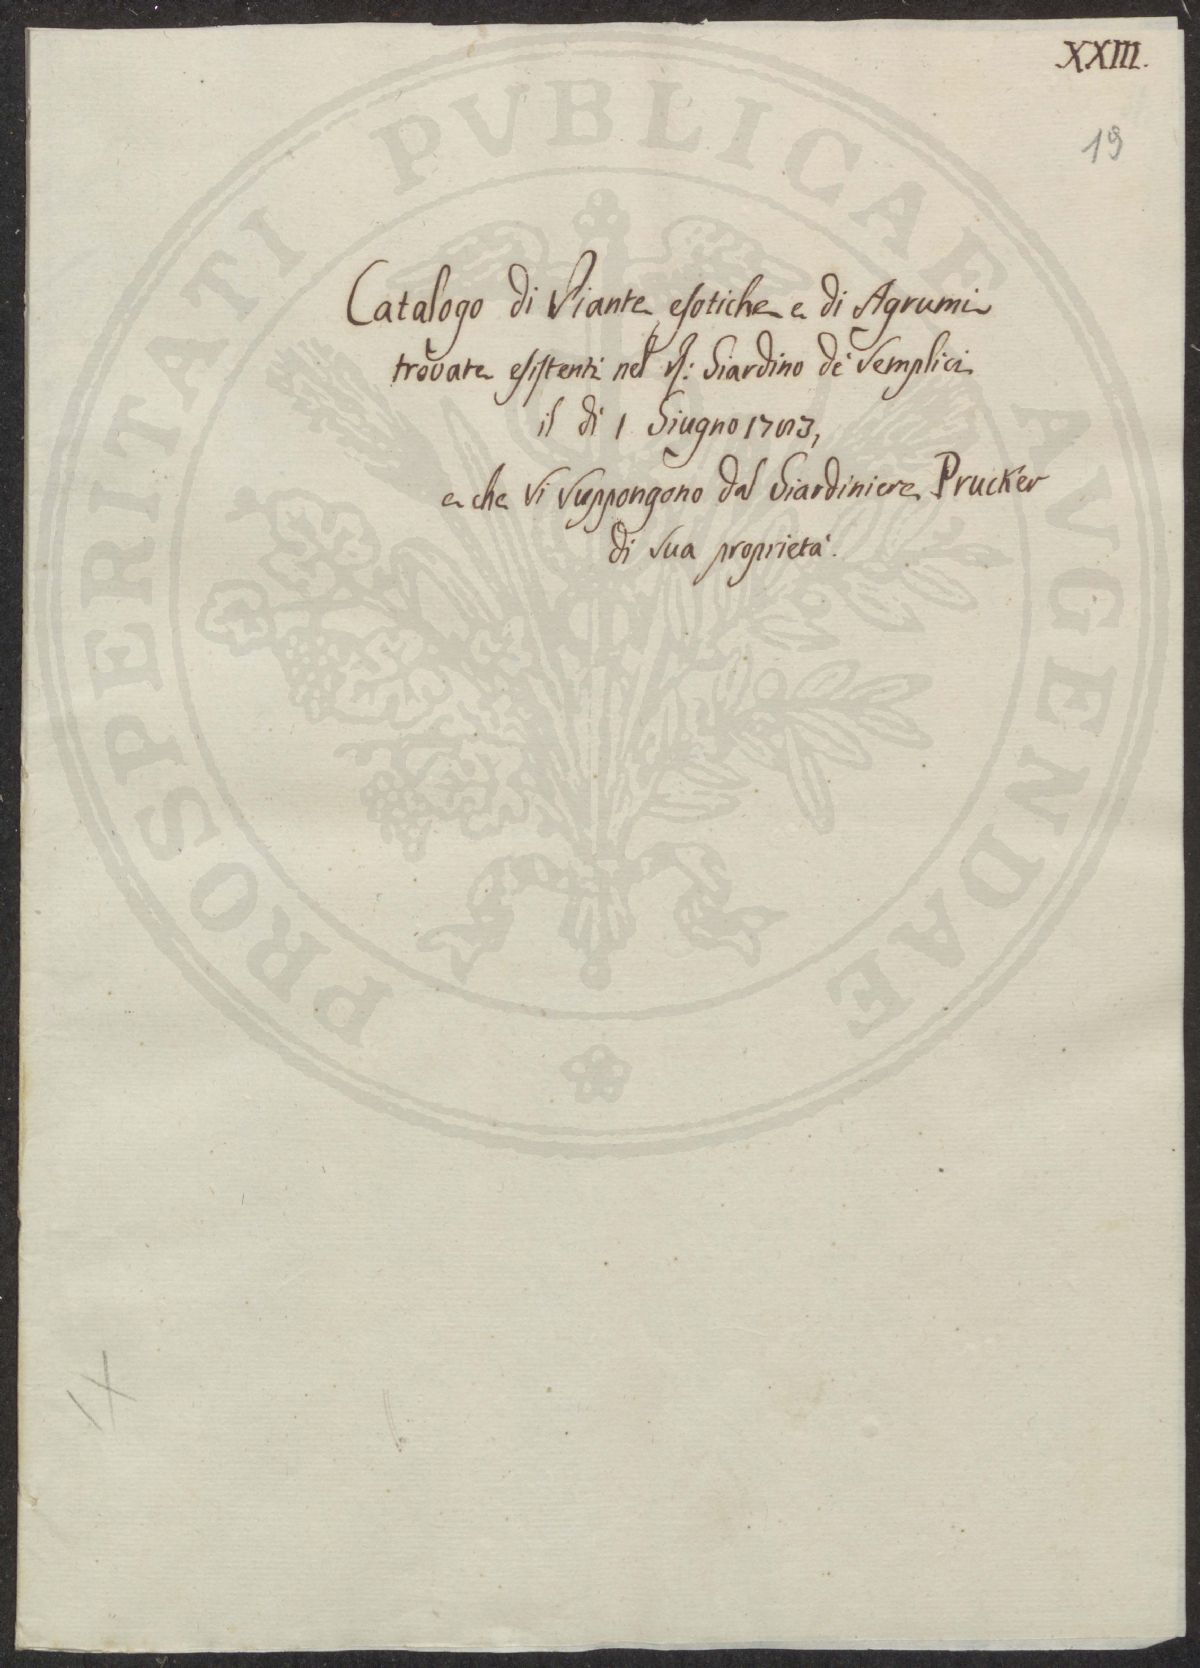 XXIII.
19
Catalogo di Piante esotiche e di Agrumi
trovate esistenti nel R: Giardino de' Semplici
il dì 1 Giugno 1783,
e che si suppongono dal Giardiniere Prucker
di sua proprietà.
IX
PROSPERITATI PVBLICAE AVGENDAE